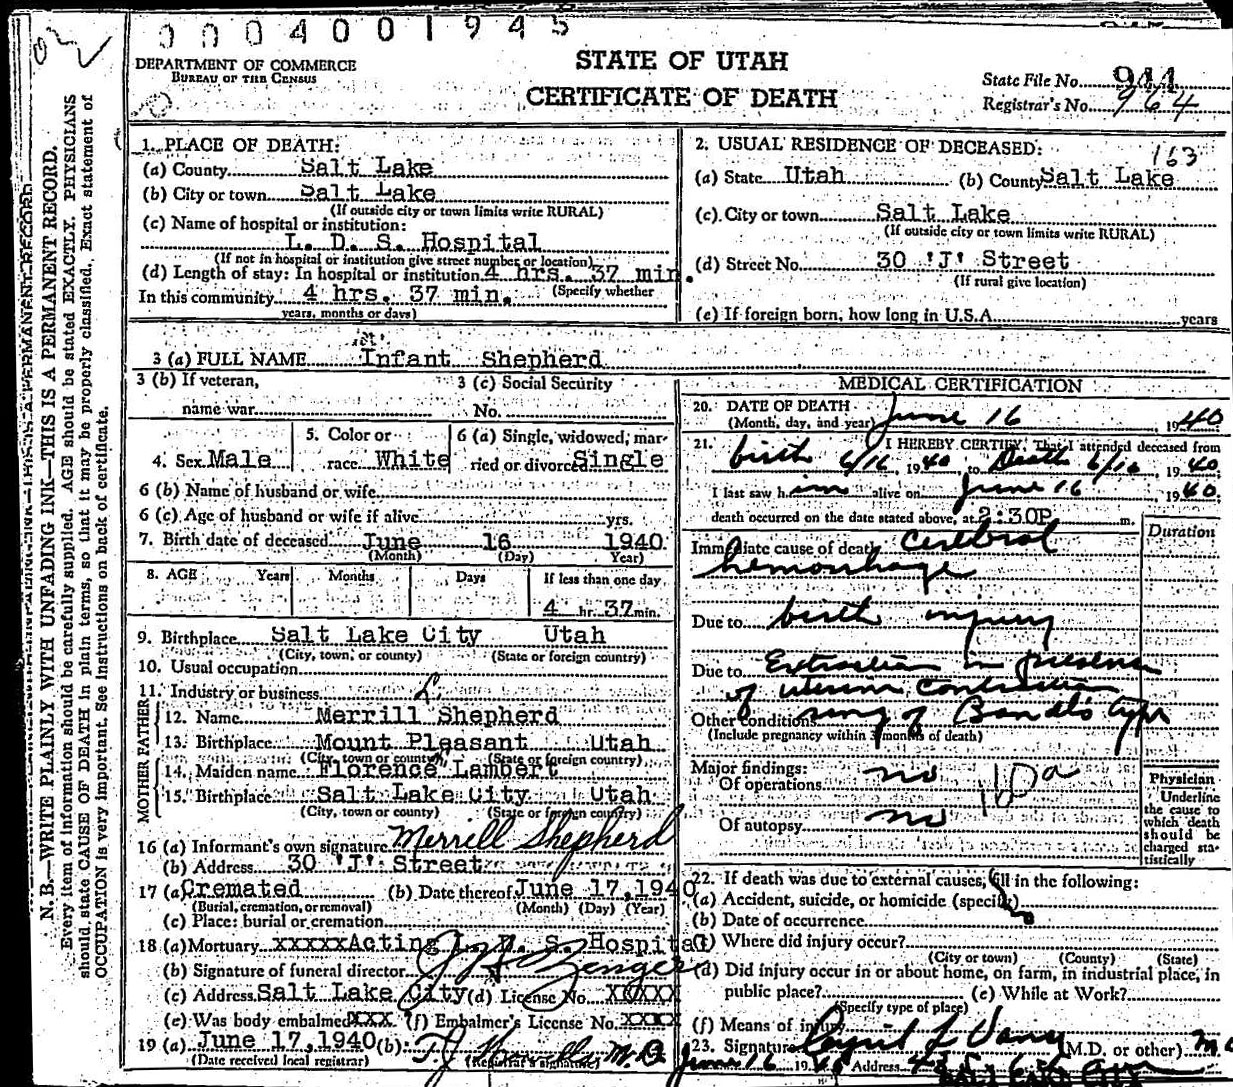 0004001945
DEPARTMENT OF COMMERCE
BUREAU OF THE CENSUS
STATE OF UTAH
CERTIFICATE OF DEATH
State File No. 944
Registrar's No. 964
N. B.—WRITE PLAINLY WITH UNFADING INK—THIS IS A PERMANENT RECORD.
Every item of information should be carefully supplied. AGE should be stated EXACTLY. PHYSICIANS
should state CAUSE OF DEATH in plain terms, so that it may be properly classified. Exact statement of
OCCUPATION is very important. See instructions on back of certificate.
1. PLACE OF DEATH:
(a) County Salt Lake
(b) City or town Salt Lake
(If outside city or town limits write RURAL)
(c) Name of hospital or institution:
L. D. S. Hospital
(If not in hospital or institution give street number or location)
(d) Length of stay: In hospital or institution 4 hrs. 37 min.
In this community 4 hrs. 37 min. (Specify whether
years, months or days)
2. USUAL RESIDENCE OF DECEASED: 163
(a) State Utah (b) County Salt Lake
(c) City or town Salt Lake
(If outside city or town limits write RURAL)
(d) Street No. 30 'J' Street
(If rural give location)
(e) If foreign born, how long in U.S.A. years
3 (a) FULL NAME Infant Shepherd
3 (b) If veteran, 3 (c) Social Security
name war No.
4. Sex Male 5. Color or race White 6 (a) Single, widowed, married or divorced Single
6 (b) Name of husband or wife
6 (c) Age of husband or wife if alive yrs.
7. Birth date of deceased June 16 1940
(Month) (Day) Year)
8. AGE Years Months Days If less than one day
4 hr. 37 min.
9. Birthplace Salt Lake City Utah
(City, town, or county) (State or foreign country)
10. Usual occupation
11. Industry or business
FATHER
12. Name Merrill Shepherd
13. Birthplace Mount Pleasant Utah
(City, town or county) (State or foreign country)
MOTHER
14. Maiden name Florence Lambert
15. Birthplace Salt Lake City Utah
(City, town or county) (State or foreign country)
16 (a) Informant's own signature Merrill Shepherd
(b) Address 30 'J' Street
17 (a) Cremated (b) Date thereof June 17, 1940
(Burial, cremation, or removal) (Month) (Day) (Year)
(c) Place: burial or cremation
18 (a) Mortuary xxxxxActing L. D. S. Hospital
(b) Signature of funeral director
(c) Address Salt Lake City (d) License No. XXXXX
(e) Was body embalmed XXX (f) Embalmer's License No. XXXX
19 (a) June 17, 1940 (b) M.D.
(Date received local registrar) (Registrar's signature)
MEDICAL CERTIFICATION
20. DATE OF DEATH
(Month, day, and year) June 16, 1940
21. I HEREBY CERTIFY, That I attended deceased from
birth 6/16, 1940 to Death 6/16, 1940.
I last saw him alive on June 16, 1940.
death occurred on the date stated above, at 2:30P m.
Duration
Immediate cause of death Cerebral
hemorrhage
Due to birth injury
Due to Extraction in presence
of uterine contraction
ring of Bandl's type
Other conditions
(Include pregnancy within 3 months of death)
Major findings:
Of operations no 160a
Of autopsy no
Physician
Underline
the cause to
which death
should be
charged sta-
tistically
22. If death was due to external causes, fill in the following:
(a) Accident, suicide, or homicide (specify) no
(b) Date of occurrence
(c) Where did injury occur?
(City or town) (County) (State)
(d) Did injury occur in or about home, on farm, in industrial place, in
public place? (e) While at Work?
(Specify type of place)
(f) Means of injury
23. Signature (M.D. or other) MD
June 16 1940 Address
SALT LAKE CITY